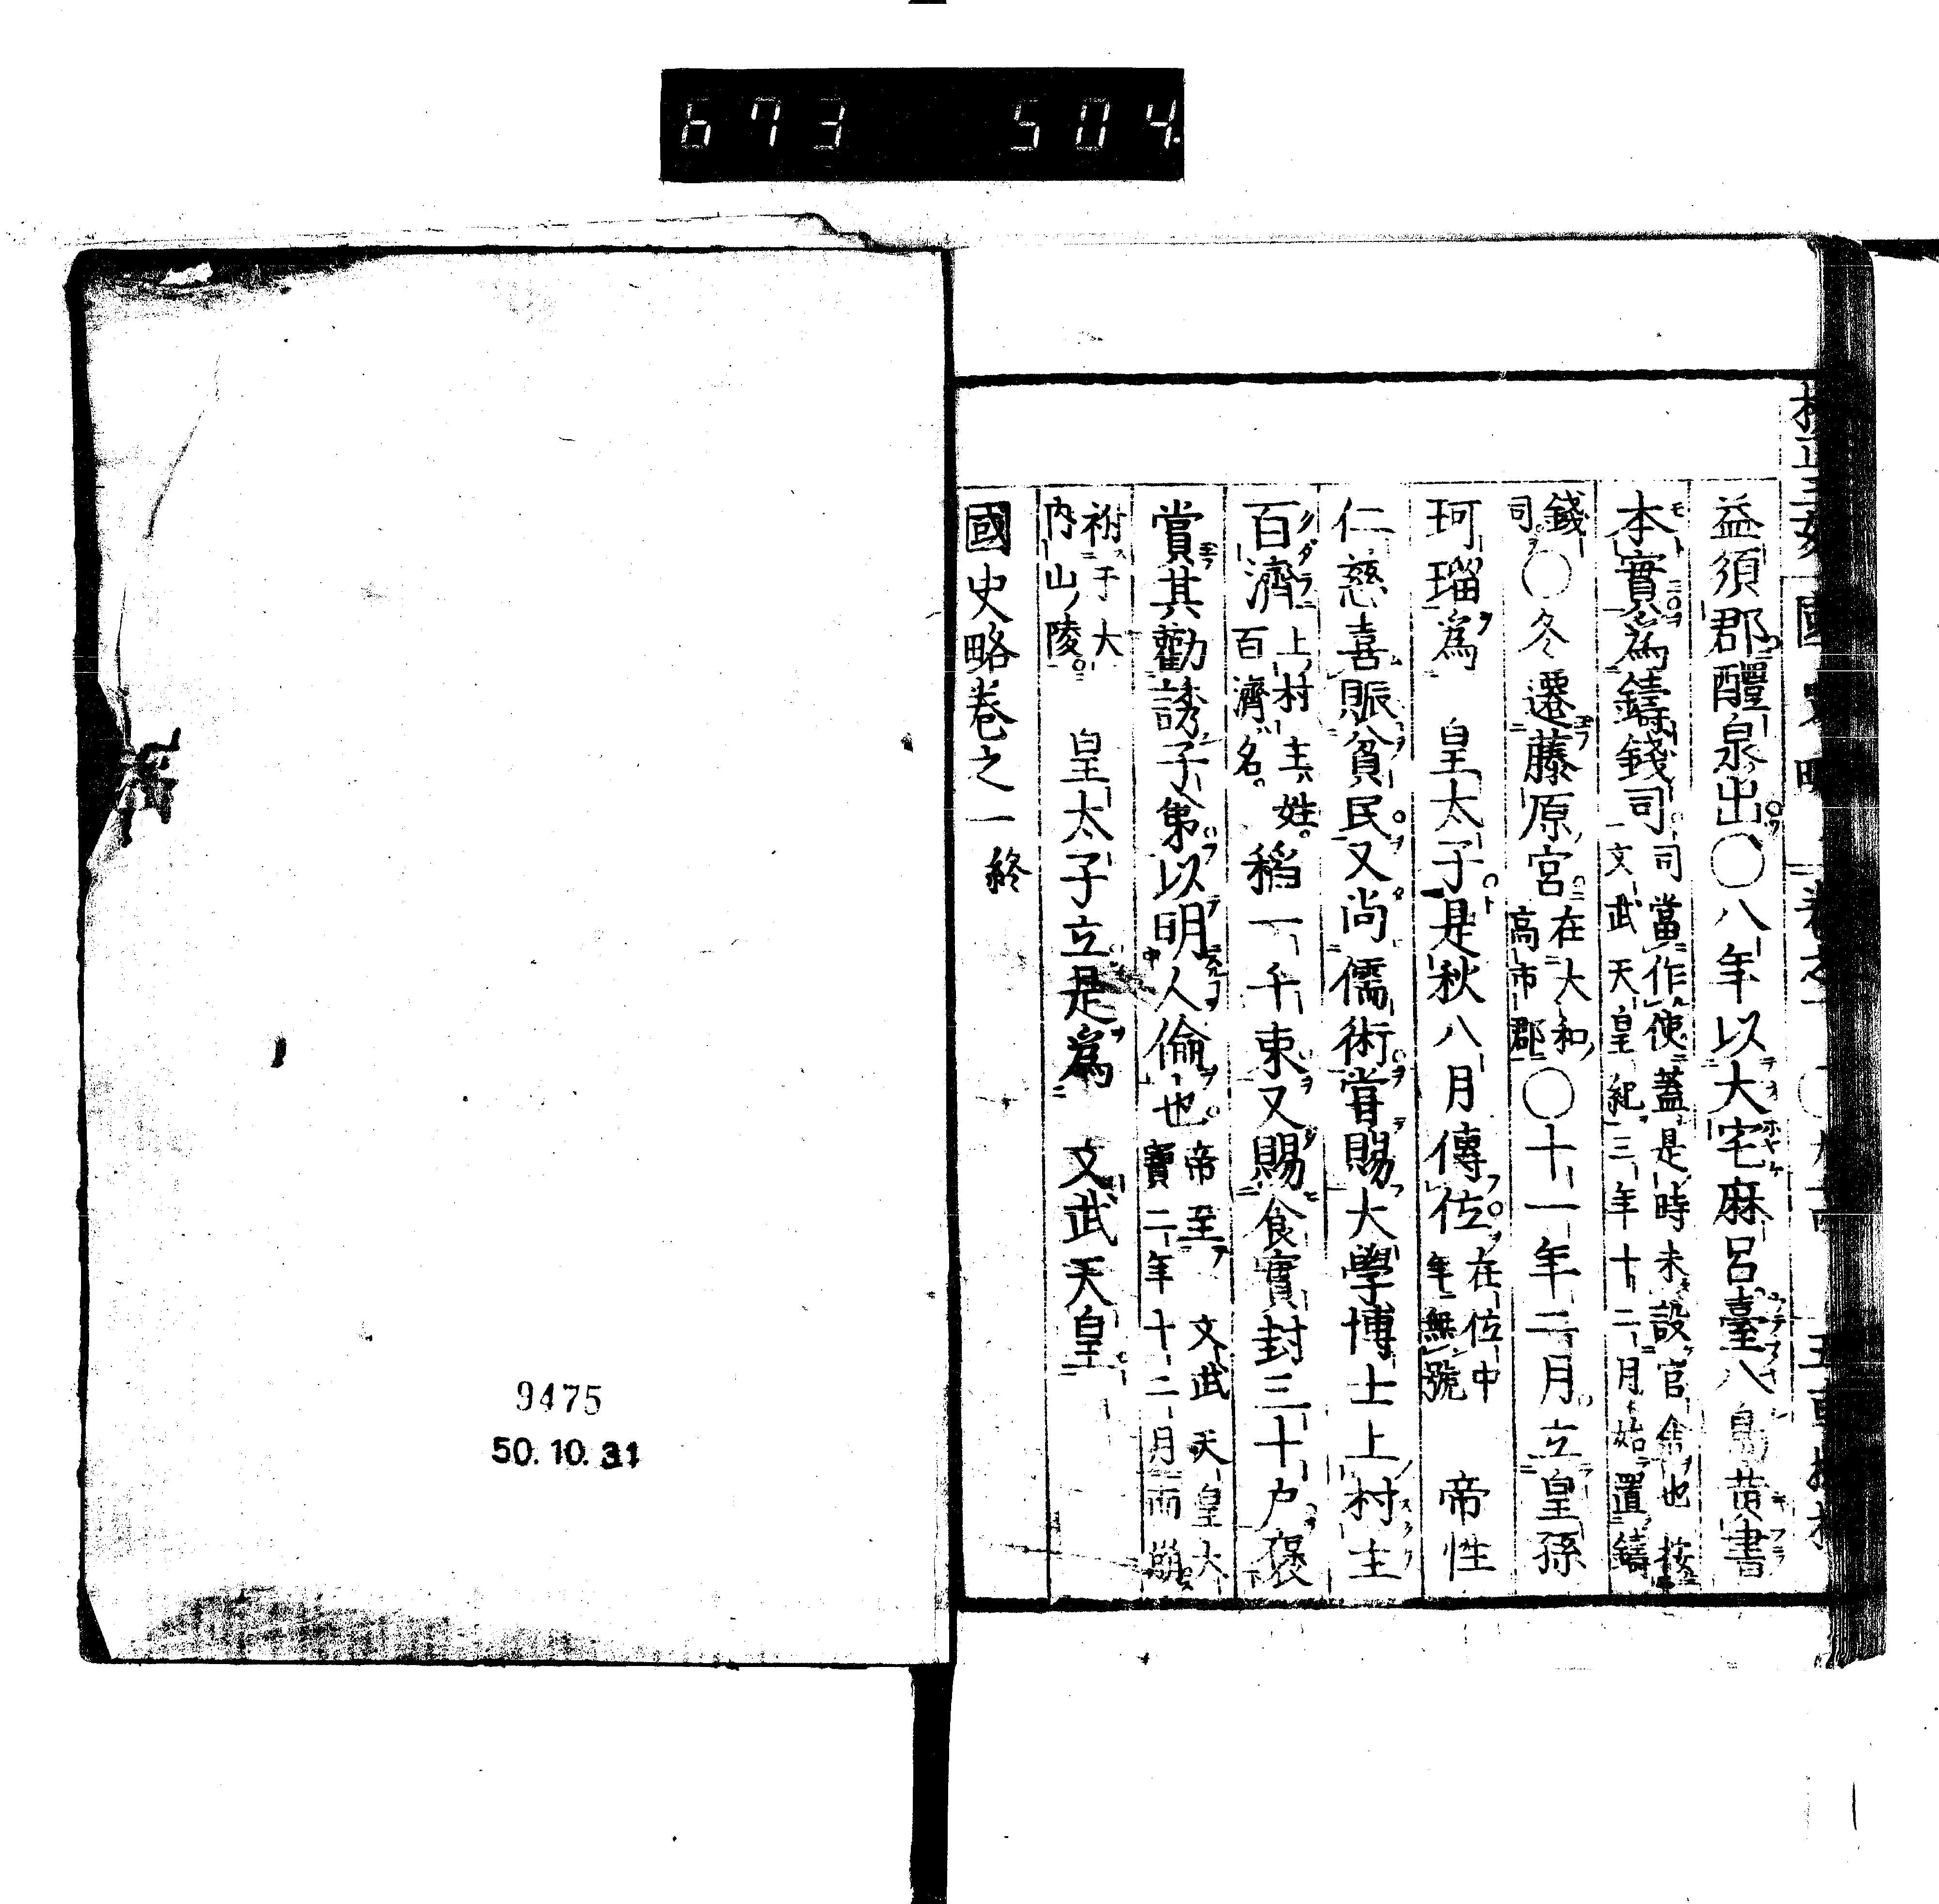 673 504
益須郡醴泉出○八年以大宅麻呂臺八島黄書
本實爲鑄錢司司當作使蓋是時未設官舍也按文武天皇紀三年十二月始置鑄
錢司○冬遷藤原宮在大和高市郡○十一年二月立皇孫
珂瑠爲 皇太子是秋八月傳位在位中年無號 帝性
仁慈喜賑貧民又尚儒術嘗賜大學博士上村主
百濟上村主姓百濟名稻一千束又賜食實封三十戶褒
賞其勸誘子弟以明人倫也帝至 文武天皇大寶二年十二月而崩
祔于大内山陵 皇太子立是爲 文武天皇
國史略卷之一終
9475
50.10.31